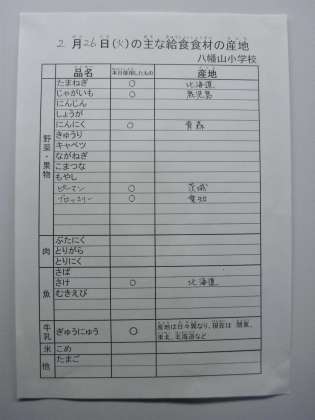 2月26日(火)の主な給食食材の産地
八幡山小学校
品名 本日使用したもの 産地
野菜・果物
たまねぎ ○ 北海道
じゃがいも ○ 鹿児島
にんじん
しょうが
にんにく ○ 青森
きゅうり
キャベツ
ながねぎ
こまつな
もやし
ピーマン ○ 茨城
ブロッコリー ○ 愛知
肉
ぶたにく
とりがら
とりにく
魚
さば
さけ ○ 北海道
むきえび
牛乳 ぎゅうにゅう ○ 産地は日々異なり、現在は 関東、
東北、北海道など
米 こめ
他 たまご